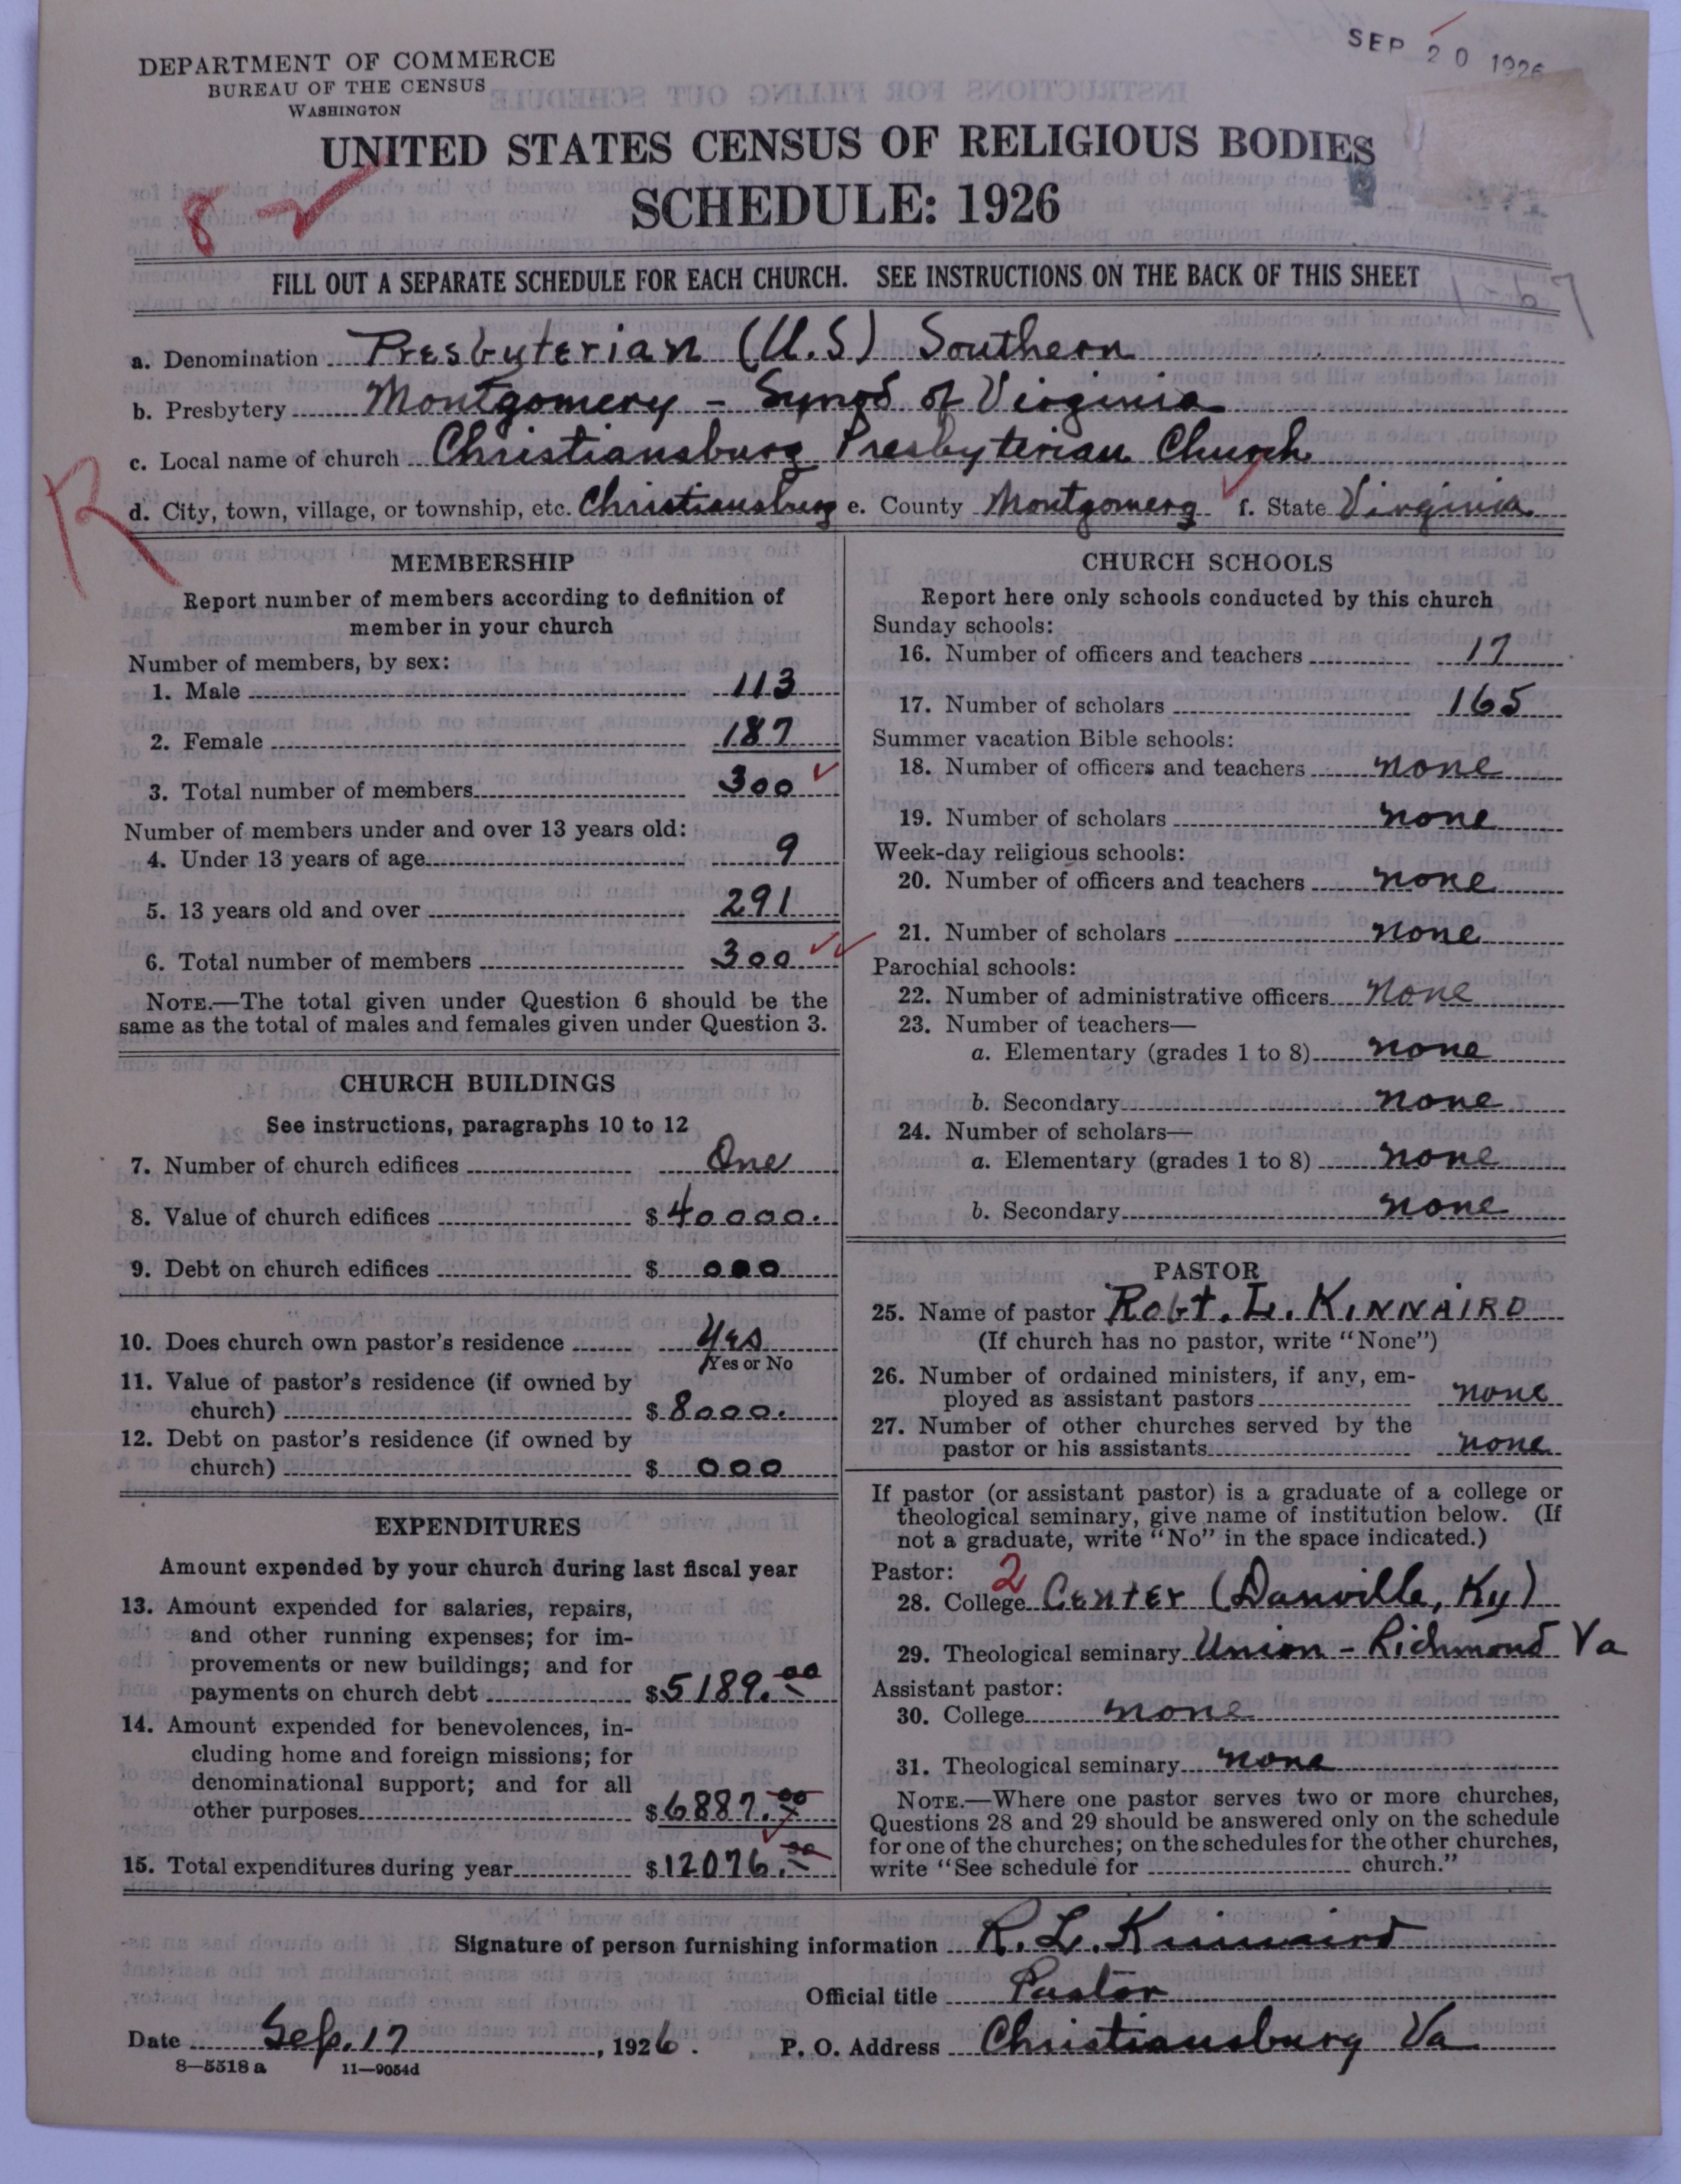 SEP 20 1926
DEPARTMENT OF COMMERCE
BUREAU OF THE CENSUS
WASHINGTON
UNITED STATES CENSUS OF RELIGIOUS BODIES
SCHEDULE: 1926
8 2
FILL OUT A SEPARATE SCHEDULE FOR EACH CHURCH. SEE INSTRUCTIONS ON THE BACK OF THIS SHEET
a. Denomination Presbyterian (U.S) Southern
b. Presbytery Montgomery - Synod of Virginia
c. Local name of church Christiansburg Presbyterian Church
R
d. City, town, village, or township, etc. Christiansburg e. County Montgomery f. State Virginia
MEMBERSHIP
Report number of members according to definition of
member in your church
Number of members, by sex:
1. Male 113
2. Female 187
3. Total number of members 300
Number of members under and over 13 years old:
4. Under 13 years of age 9
5. 13 years old and over 291
6. Total number of members 300
NOTE.—The total given under Question 6 should be the
same as the total of males and females given under Question 3.
CHURCH BUILDINGS
See instructions, paragraphs 10 to 12
7. Number of church edifices One
8. Value of church edifices $40000.
9. Debt on church edifices $000
10. Does church own pastor's residence Yes
Yes or No
11. Value of pastor's residence (if owned by
church) $8000.
12. Debt on pastor's residence (if owned by
church) $000
EXPENDITURES
Amount expended by your church during last fiscal year
13. Amount expended for salaries, repairs,
and other running expenses; for im-
provements or new buildings; and for
payments on church debt $5189.00
14. Amount expended for benevolences, in-
cluding home and foreign missions; for
denominational support; and for all
other purposes $6887.00
15. Total expenditures during year $12076.00
CHURCH SCHOOLS
Report here only schools conducted by this church
Sunday schools:
16. Number of officers and teachers 17
17. Number of scholars 165
Summer vacation Bible schools:
18. Number of officers and teachers none
19. Number of scholars none
Week-day religious schools:
20. Number of officers and teachers none
21. Number of scholars none
Parochial schools:
22. Number of administrative officers none
23. Number of teachers—
a. Elementary (grades 1 to 8) none
b. Secondary none
24. Number of scholars—
a. Elementary (grades 1 to 8) none
b. Secondary none
PASTOR
25. Name of pastor Robt. L. KINNAIRD
(If church has no pastor, write "None")
26. Number of ordained ministers, if any, em-
ployed as assistant pastors none
27. Number of other churches served by the
pastor or his assistants none
If pastor (or assistant pastor) is a graduate of a college or
theological seminary, give name of institution below. (If
not a graduate, write "No" in the space indicated.)
Pastor: 2
28. College Center (Danville, Ky)
29. Theological seminary Union - Richmond Va
Assistant pastor:
30. College none
31. Theological seminary none
NOTE.—Where one pastor serves two or more churches,
Questions 28 and 29 should be answered only on the schedule
for one of the churches; on the schedules for the other churches,
write "See schedule for church."
Signature of person furnishing information R. L. Kinnaird
Official title Pastor
Date Sep. 17, 1926. P. O. Address Christiansburg Va
8—5518 a 11—9054d